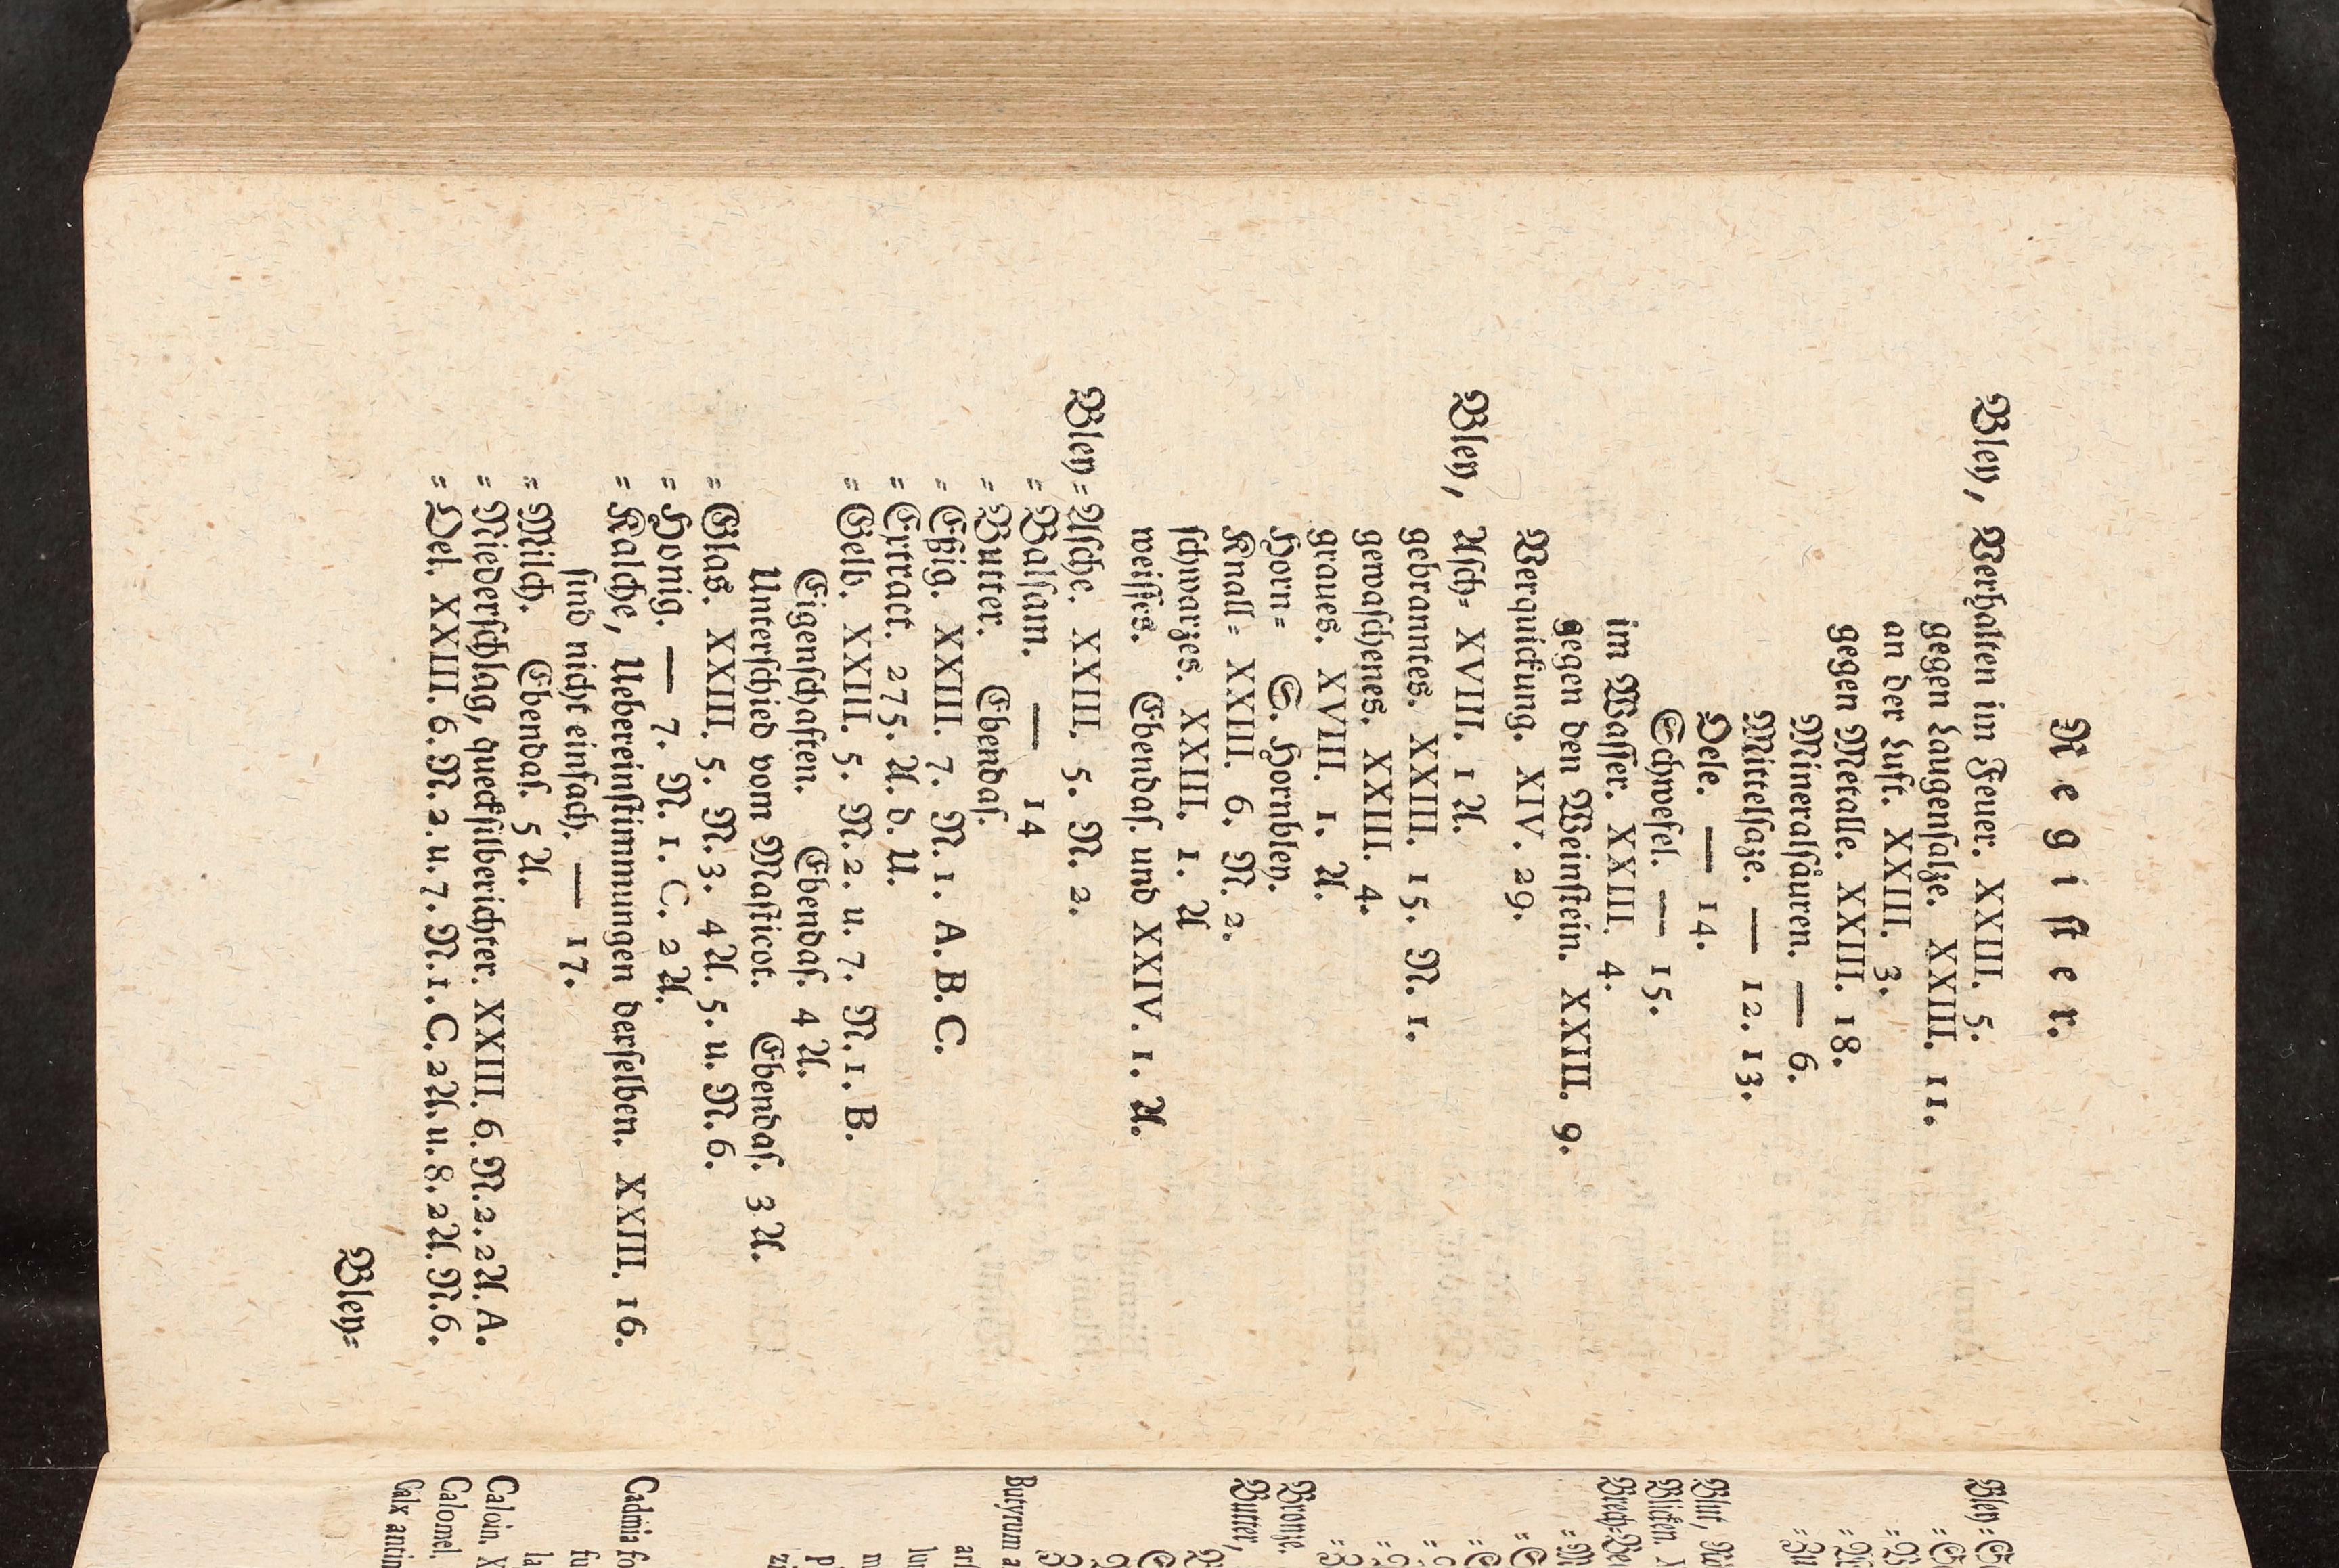 Regiſter.
Bley, Verhalten im Feuer. XXIII. 5.
gegen Laugenſalze. XXIII. 11.
an der Luft. XXIII. 3.
gegen Metalle. XXIII. 18.
Mineralſäuren. — 6.
Mittelſalze. — 12. 13.
Oele. — 14.
Schwefel. — 15.
im Waſſer. XXIII. 4.
gegen den Weinſtein. XXIII. 9.
Verquickung. XIV. 29.
Bley, Aſch= XVIII. 1 A.
gebranntes. XXIII. 15. N. 1.
gewaſchenes. XXIII. 4.
graues. XVIII. 1. A.
Horn= S. Hornbley.
Knall= XXIII. 6. N. 2.
ſchwarzes. XXIII. 1. A
weiſſes. Ebendaſ. und XXIV. 1. A.
Bley=Aſche. XXIII. 5. N. 2.
= Balſam. — 14
= Butter. Ebendaſ.
= Eßig. XXIII. 7. N. 1. A. B. C.
= Extract. 275. A. d. U.
= Gelb. XXIII. 5. N. 2. u. 7. N. 1. B.
Eigenſchaften. Ebendaſ. 4 A.
Unterſchied vom Maſticot. Ebendaſ. 3 A.
= Glas. XXIII. 5. N. 3. 4 A. 5. u. N. 6.
= Honig. — 7. N. 1. C. 2 A.
= Kalche, Uebereinſtimmungen derſelben. XXIII. 16.
ſind nicht einfach. — 17.
= Milch. Ebendaſ. 5 A.
= Niederſchlag, queckſilberichter. XXIII. 6. N. 2. 2 A. A.
= Oel. XXIII. 6. N. 2. u. 7. N. 1. C. 2 A. u. 8. 2 A. N. 6.
Bley=
Bley=
Blut,
Blicken.
Bronze.
Butter,
Butyrum a
Cadmia fo
Caloin. X
Calomel.
Calx antim